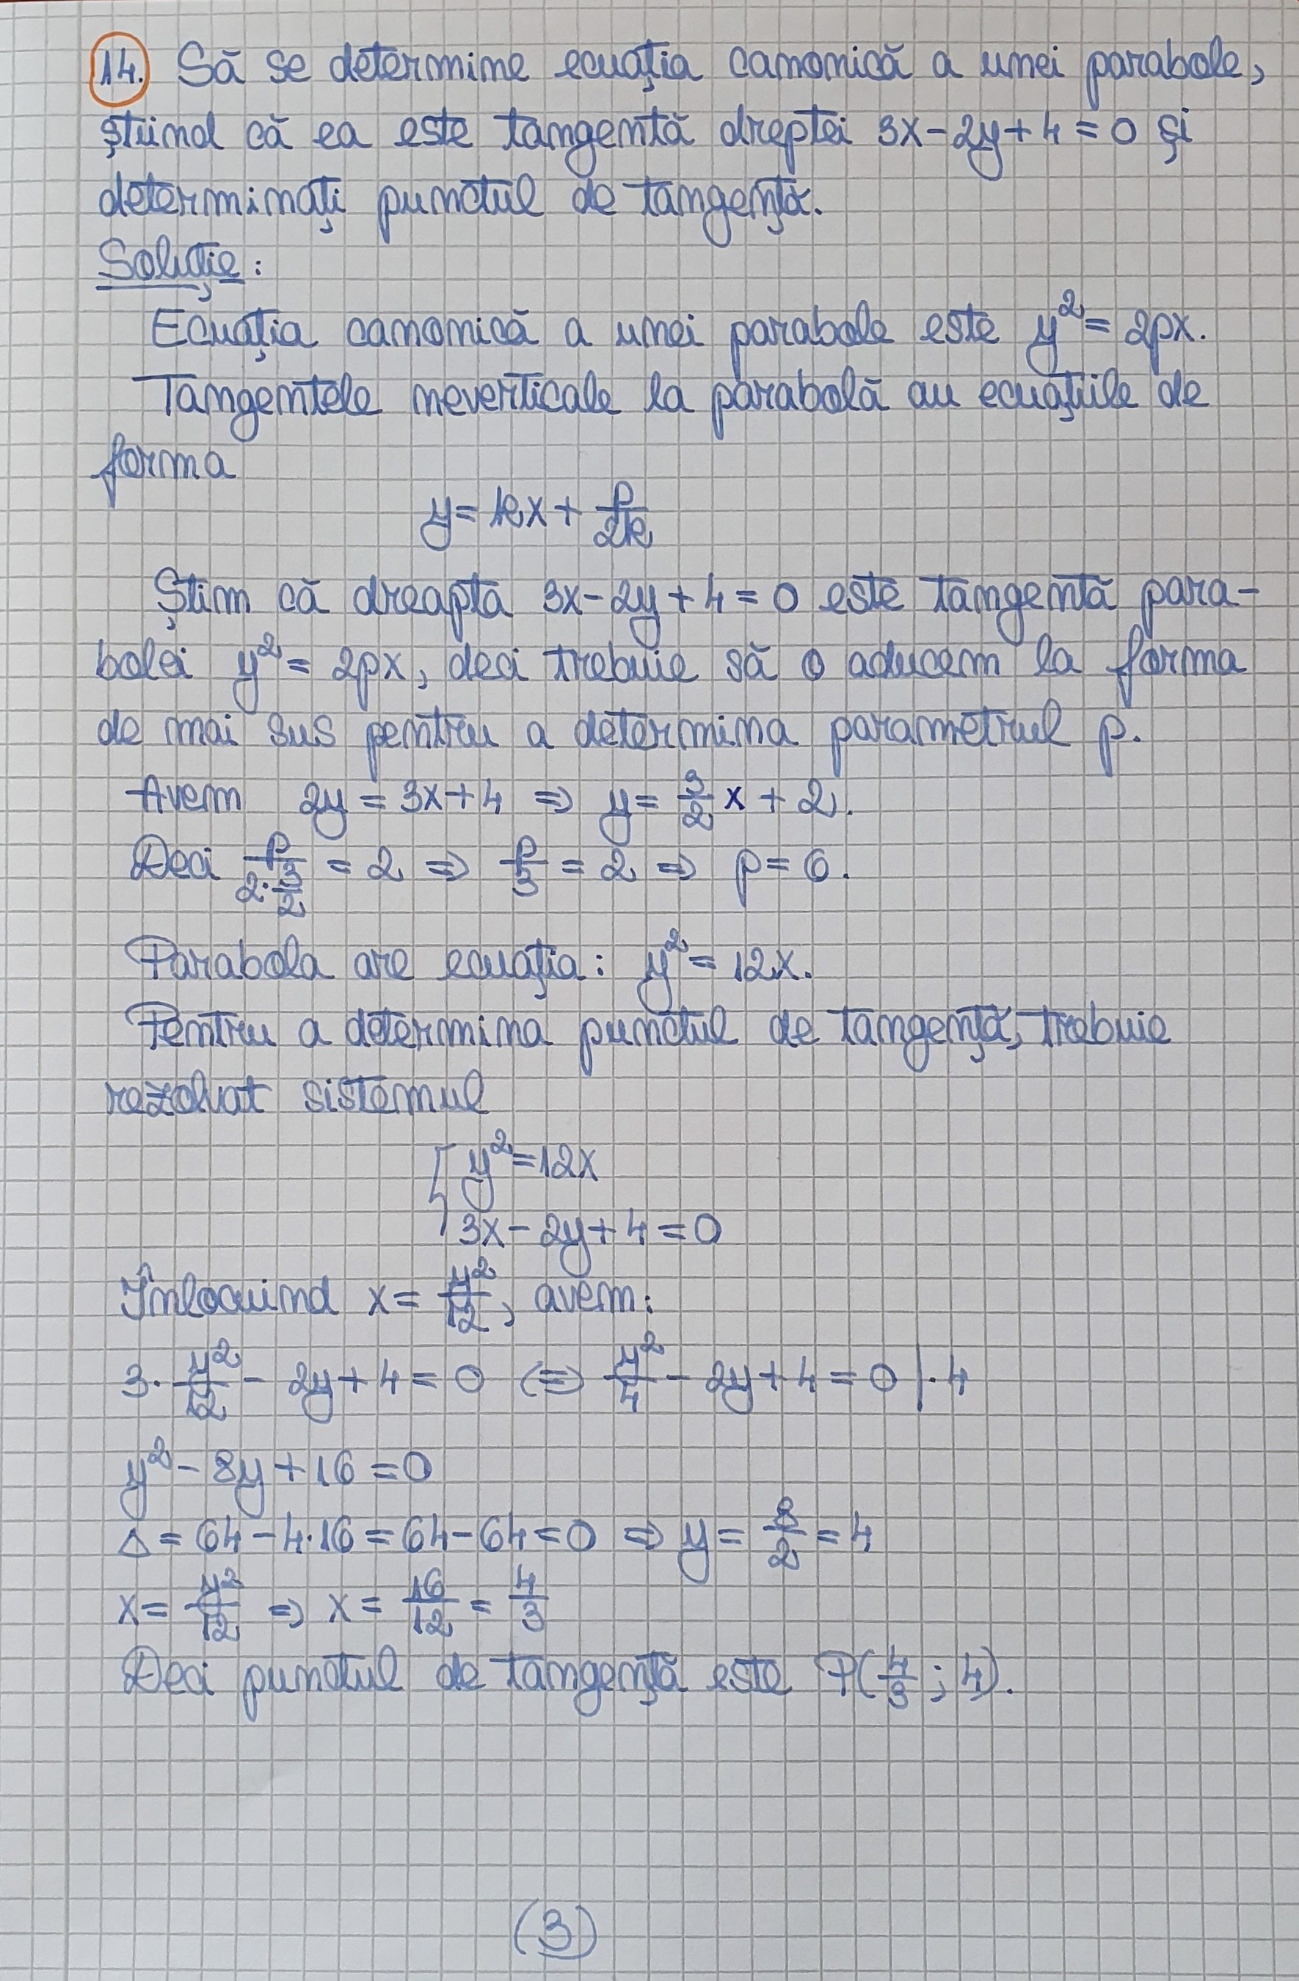 14. Să se determine ecuația canonică a unei parabole,
știind că ea este tangentă dreptei 3x-2y+4=0 și
determinați punctul de tangență.
Soluție:
Ecuația canonică a unei parabole este y²=2px.
Tangentele neverticale la parabolă au ecuațiile de
forma
y=kx+p/2k
Știm că dreapta 3x-2y+4=0 este tangentă para-
bolei y²=2px, deci trebuie să o aducem la forma
de mai sus pentru a determina parametrul p.
Avem 2y=3x+4 ⇒ y=3/2 x+2.
Deci p/(2·3/2)=2 ⇒ p/3=2 ⇒ p=6.
Parabola are ecuația: y²=12x.
Pentru a determina punctul de tangență, trebuie
rezolvat sistemul
{ y²=12x
3x-2y+4=0
Înlocuind x=y²/12, avem:
3·y²/12-2y+4=0 ⇔ y²/4-2y+4=0 |·4
y²-8y+16=0
Δ=64-4·16=64-64=0 ⇒ y=8/2=4
x=y²/12 ⇒ x=16/12=4/3
Deci punctul de tangență este P(4/3; 4).
(3)